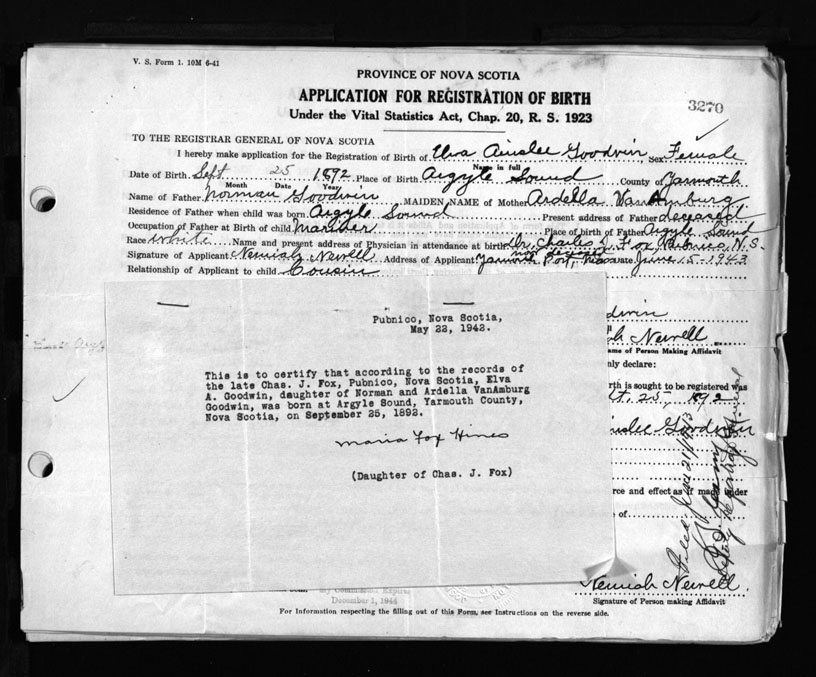 V. S. Form 1. 10M 6-41
PROVINCE OF NOVA SCOTIA
APPLICATION FOR REGISTRATION OF BIRTH
3270
Under the Vital Statistics Act, Chap. 20, R. S. 1923
TO THE REGISTRAR GENERAL OF NOVA SCOTIA
I hereby make application for the Registration of Birth of Elva Ainslee Goodwin, Sex Female
Name in full
Date of Birth Sept 25 1892 Place of Birth Argyle Sound County of Yarmouth
Month Date Year
Name of Father Norman Goodwin MAIDEN NAME of Mother Ardella VanAmburg
Residence of Father when child was born Argyle Sound Present address of Father deceased
Occupation of Father at Birth of child Mariner Place of birth of Father Argyle Sound
Race White Name and present address of Physician in attendance at birth Dr. Charles J. Fox, Pubnico, N.S.
Signature of Applicant Nemiah Newell Address of Applicant Yarmouth Port, Mass Date June 15-1943
Relationship of Applicant to child Cousin
Pubnico, Nova Scotia,
May 22, 1942.
This is to certify that according to the records of
the late Chas. J. Fox, Pubnico, Nova Scotia, Elva
A. Goodwin, daughter of Norman and Ardella VanAmburg
Goodwin, was born at Argyle Sound, Yarmouth County,
Nova Scotia, on September 25, 1892.
Maria Fox Hines
(Daughter of Chas. J. Fox)
dwin
h Newell
me of Person Making Affidavit
nly declare:
rth is sought to be registered was
t. 25, 1892
inslee Goodwin
rce and effect as if made under
e of
Nemiah Newell
Signature of Person making Affidavit
My Commission Expires
December 1, 1944
For Information respecting the filling out of this Form, see Instructions on the reverse side.